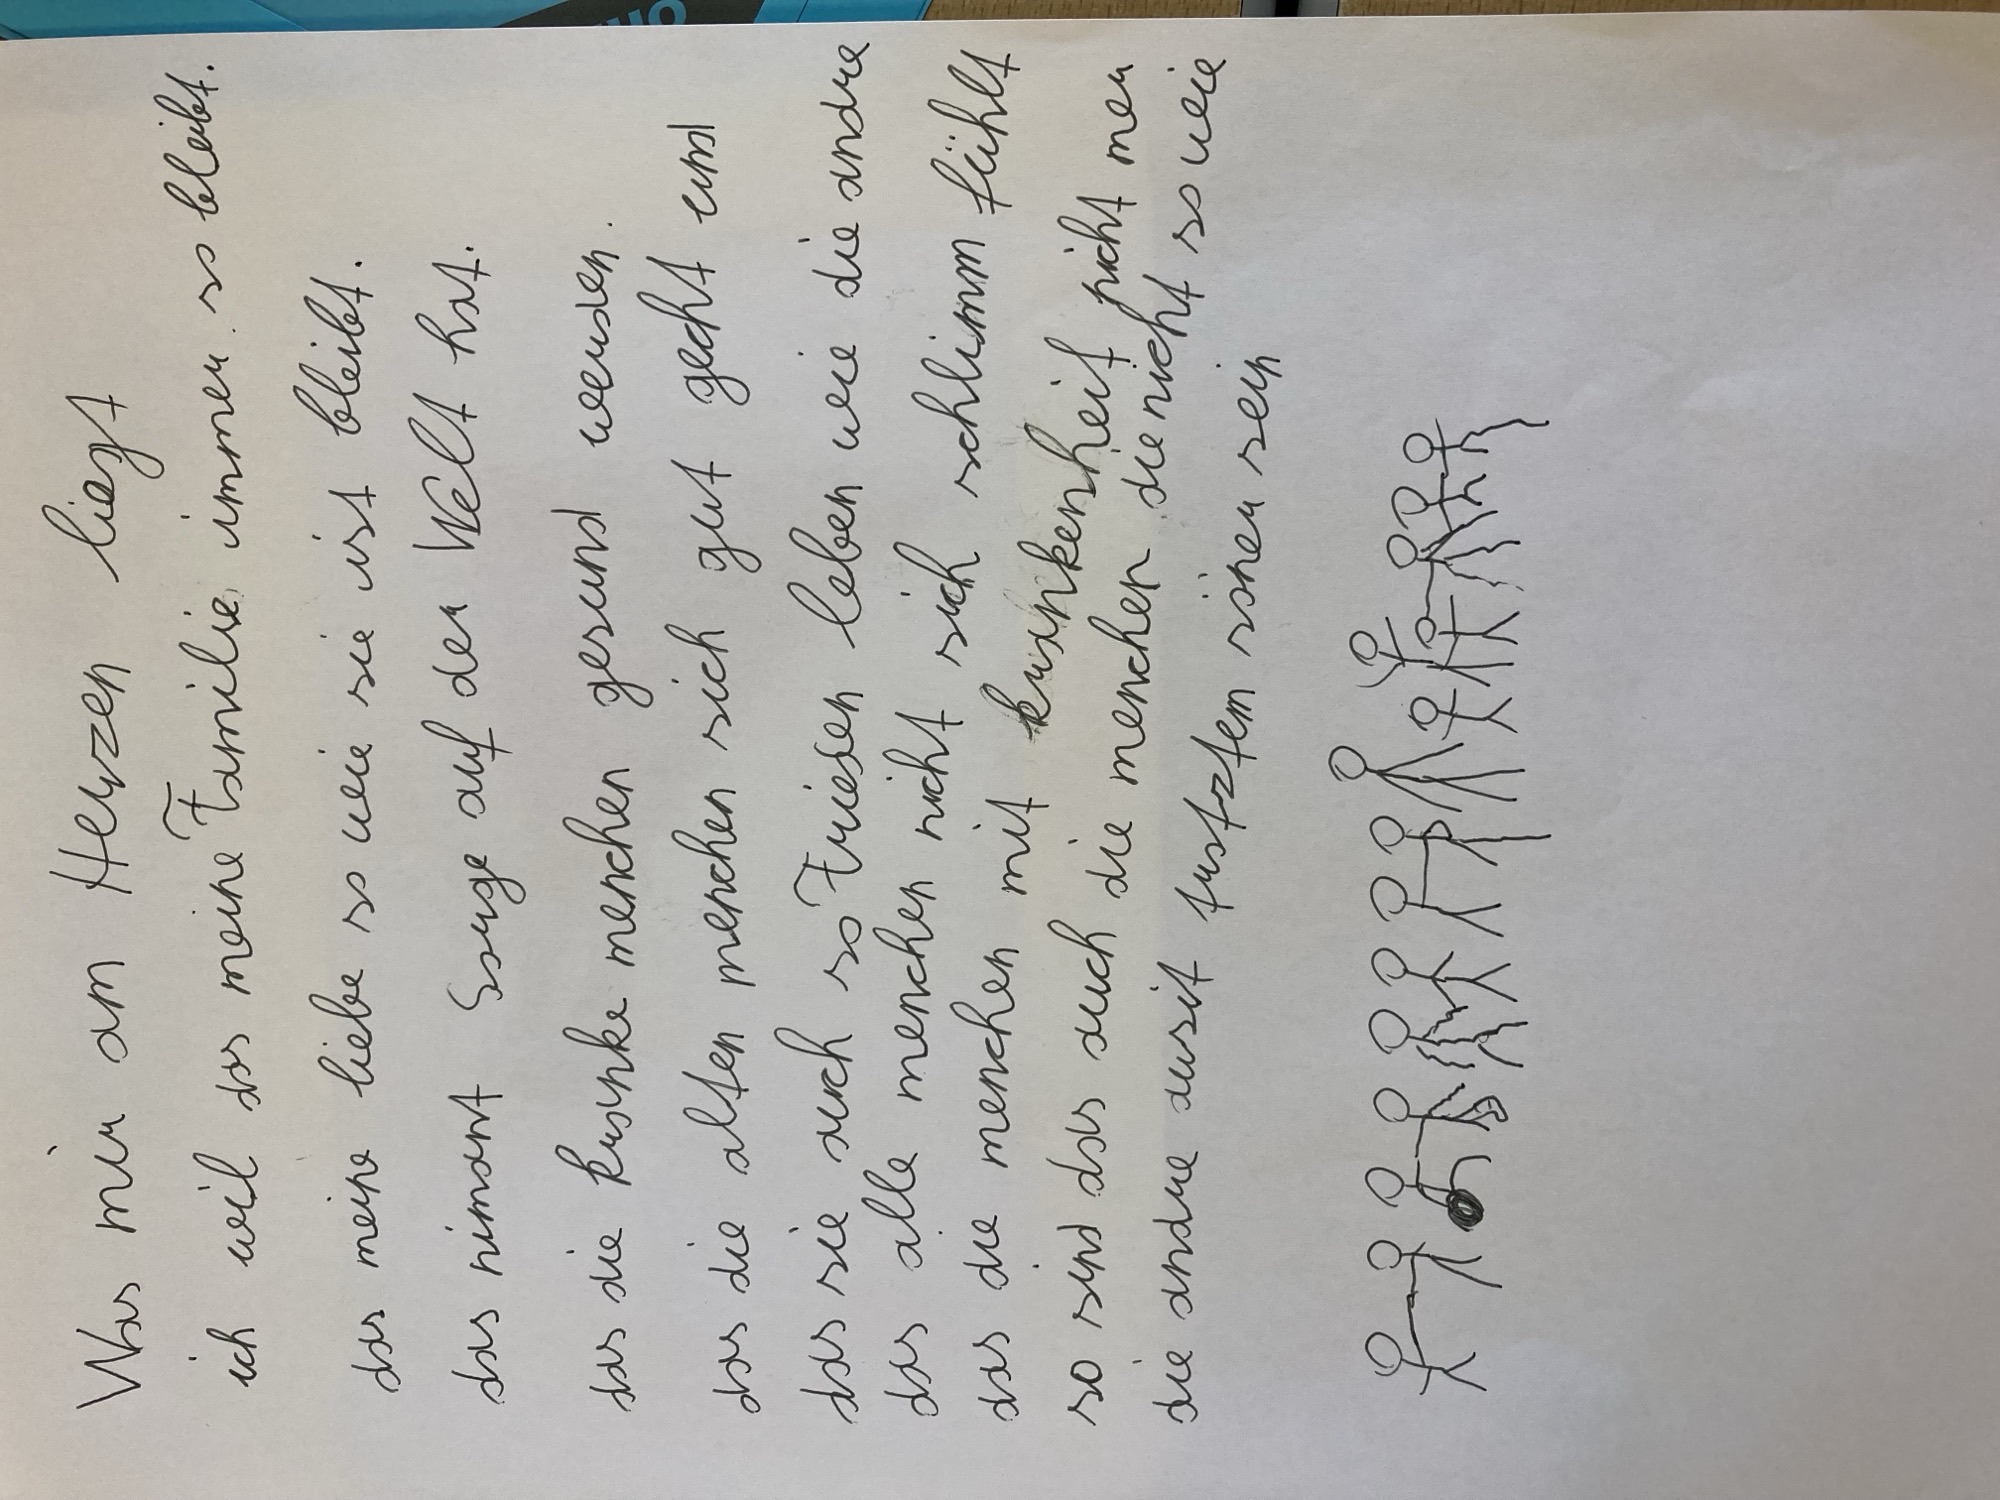 Was mir am Herzen liegt
ich wil das meine Familie immer so bleibt.
das meine liebe so wie sie ist bleibt.
das nimant Sorge auf der Welt hat.
das die kranke menchen gesund werden.
das die alten menchen sich gut geht und
das sie auch so Frieden leben wie die andre
das alle menchen nicht sich schlimm fühlt
das die menchen mit krankenheit nicht mer
so sind das auch die menchen die nicht so wie
die andre ausit trotztem sicher sein